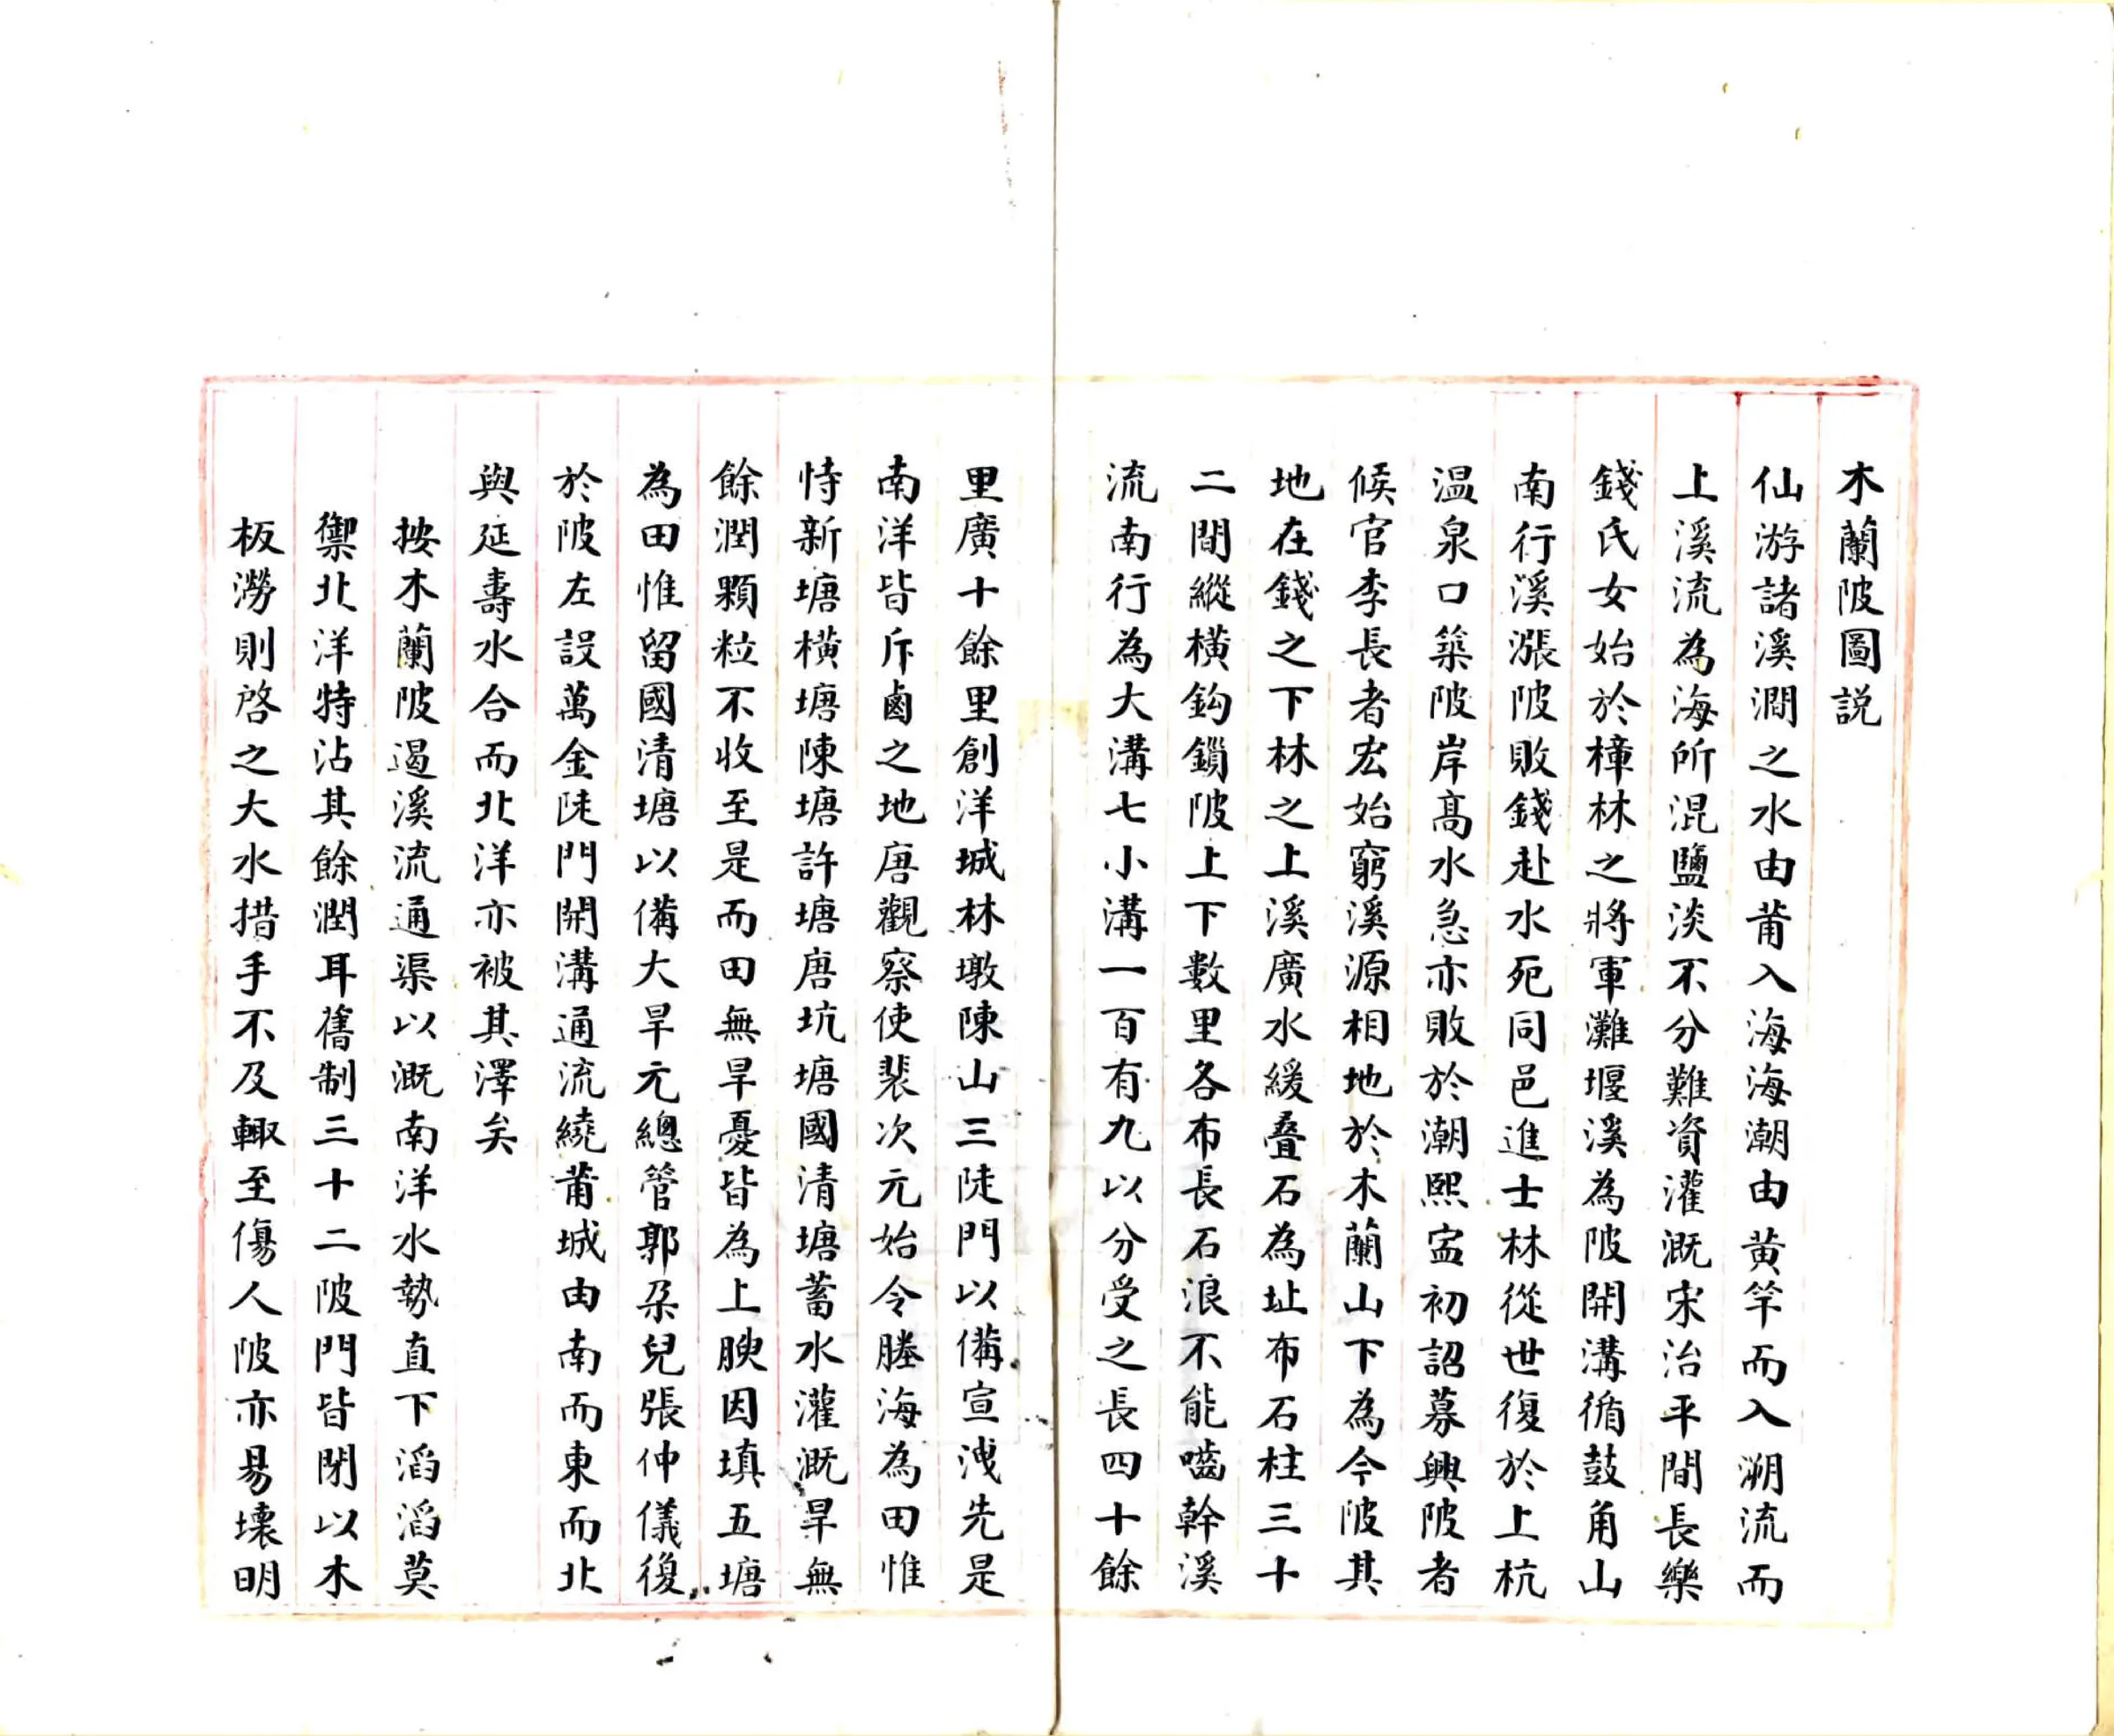 木蘭陂圖説
仙游諸溪澗之水由莆入海海潮由黄竿而入溯流而
上溪流為海所混鹽淡不分難資灌溉宋治平間長樂
錢氏女始於樟林之將軍灘堰溪為陂開溝循鼓角山
南行溪漲陂敗錢赴水死同邑進士林從世復於上杭
温泉口築陂岸高水急亦敗於潮熙寍初詔募興陂者
候官李長者宏始窮溪源相地於木蘭山下為今陂其
地在錢之下林之上溪廣水緩疊石為址布石柱三十
二間縱横鈎鎻陂上下數里各布長石浪不能嚙幹溪
流南行為大溝七小溝一百有九以分受之長四十餘
里廣十餘里創洋城林墩陳山三陡門以備宣洩先是
南洋皆斥鹵之地唐觀察使裴次元始令塍海為田惟
恃新塘横塘陳塘許塘唐坑塘國清塘蓄水灌溉旱無
餘潤顆粒不收至是而田無旱憂皆為上腴因填五塘
為田惟留國清塘以備大旱元總管郭朶兒張仲儀復
於陂左設萬金陡門開溝通流繞莆城由南而東而北
與延壽水合而北洋亦被其澤矣
按木蘭陂遏溪流通渠以溉南洋水勢直下滔滔莫
禦北洋特沾其餘潤耳舊制三十二陂門皆閉以木
板澇則啓之大水措手不及輙至傷人陂亦易壞明